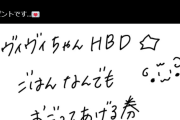 ゼントです...💌
ヴィヴィちゃん HBD ☆
ごはん なんでも
おごってあげる券